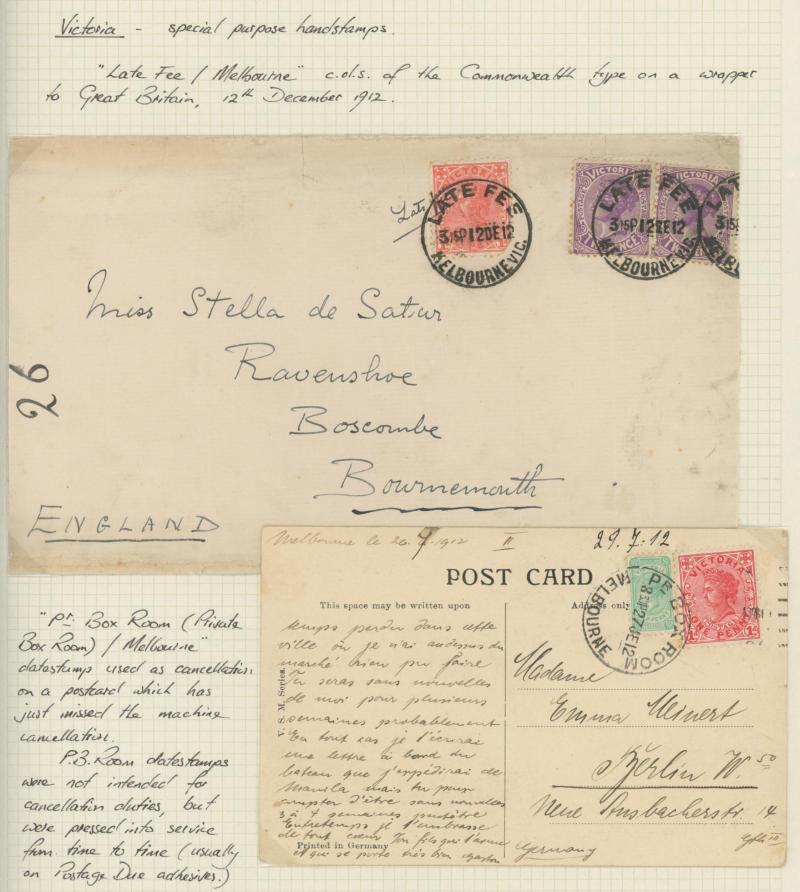 Victoria - special purpose handstamps.
"Late Fee / Melbourne" c.d.s. of the Commonwealth type on a wrapper
to Great Britain, 12th December 1912.
LATE FEE
3.15P 12DE12
MELBOURNE VIC.
VICTORIA
LATE FEE
3.15P 12DE12
MELBOURNE VIC.
VICTORIA
Miss Stella de Satur
Ravenshoe
Boscombe
Bournemouth
ENGLAND
26
"Pr. Box Room (Private
Box Room) / Melbourne"
datestamp used as cancellation
on a postcard which has
just missed the machine
cancellation.
P.B. Room datestamps
were not intended for
cancellation duties, but
were pressed into service
from time to time (usually
on Postage Due adhesives.)
Melbourne le 26.7.1912 II
29.7.12
POST CARD
This space may be written upon
Address only
PR BOX ROOM
MELBOURNE
VICTORIA
ONE PENNY
V. S. M. Series.
temps perdu dans cette
ville où je n'ai au dessus du
marché rien pu faire
Tu seras sans nouvelles
de moi pour plusieurs
semaines probablement
En tout cas je t'écrirai
une lettre à bord du
bateau que j'expédirai de
Manila mais tu peux
compter d'être sans nouvelles
3 à 4 semaines peutêtre
Entretemps je t'embrasse
de tout coeur Ton fils qui t'aime
et qui se porte très bien
Printed in Germany
Madame
Emma Meinert
Berlin W. 50
Neue Ansbacherstr 14
Germany